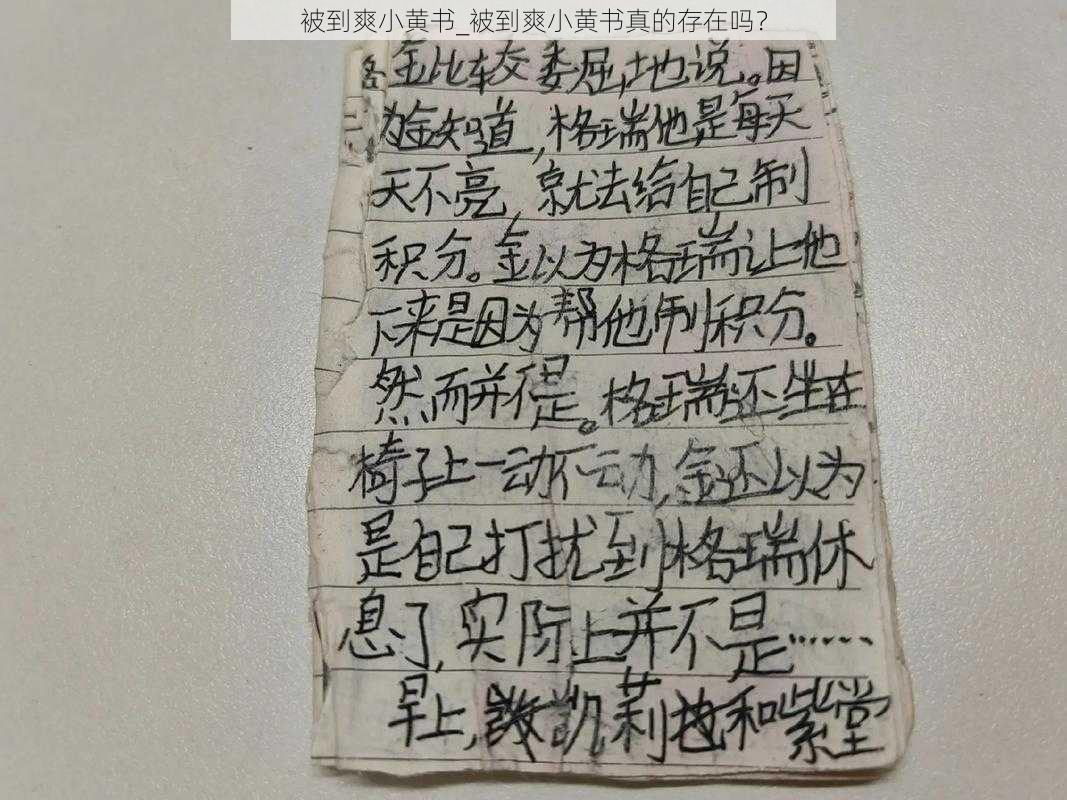 被到爽小黄书_被到爽小黄书真的存在吗?
金比较委屈,地说。因
为金知道,格瑞他是每天
天不亮,就去给自己制
积分。金以为格瑞让他
下来是因为帮他制积分。
然而并不是。格瑞还坐在
椅子上一动不动,金还以为
是自己打扰到格瑞休
息了,实际上并不是……
早上,凯莉和紫堂